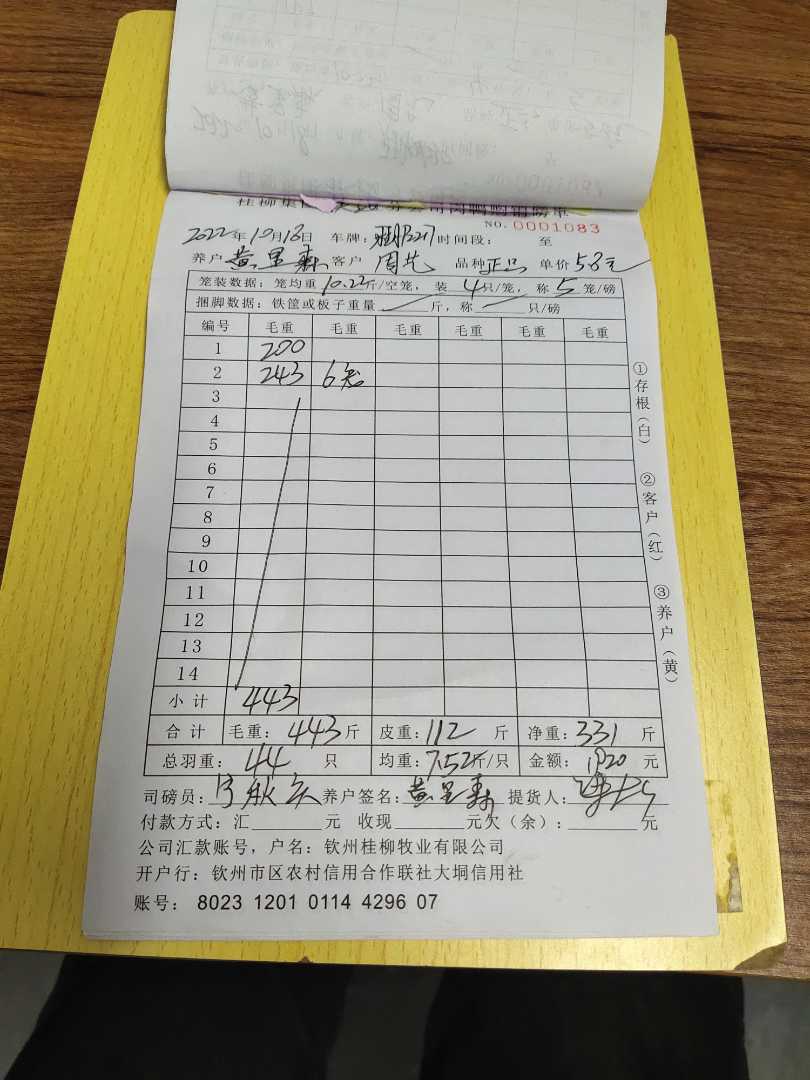 NO. 0001083
2022年10月18日 车牌: 时间段: 至
养户 黄呈森 客户 周芳 品种 正品 单价 5.8元
笼装数据: 笼均重 10.22斤/空笼, 装 4只/笼, 称 5 笼/磅
捆脚数据: 铁筐或板子重量 斤, 称 只/磅
编号 毛重 毛重 毛重 毛重 毛重 毛重
1 200
2 243 6笼
3
4
5
6
7
8
9
10
11
12
13
14
小计 443
合计 毛重: 443斤 皮重: 112 斤 净重: 331 斤
总羽重: 44 只 均重: 7.52斤/只 金额: 1920 元
司磅员: 养户签名: 黄呈森 提货人:
付款方式: 汇 元 收现 元欠(余): 元
公司汇款账号, 户名: 钦州桂柳牧业有限公司
开户行: 钦州市区农村信用合作联社大垌信用社
账号: 8023 1201 0114 4296 07
①存根(白)
②客户(红)
③养户(黄)